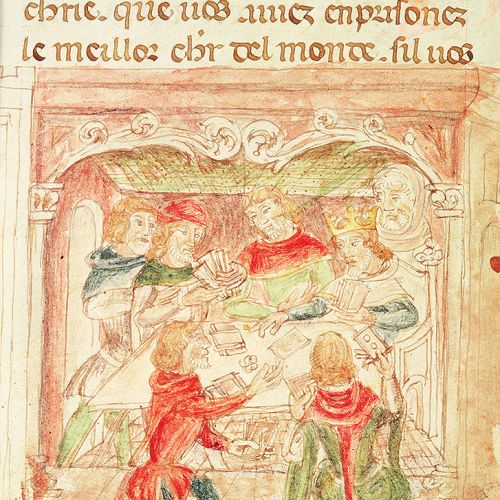 chrie. que uos auiez enprisonez
le meillor ch'r del monde. sil uos